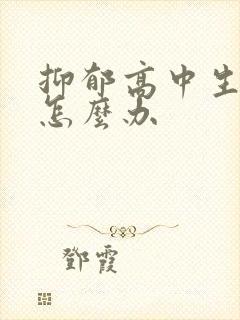 抑郁高中生
怎麼办
鄧霞